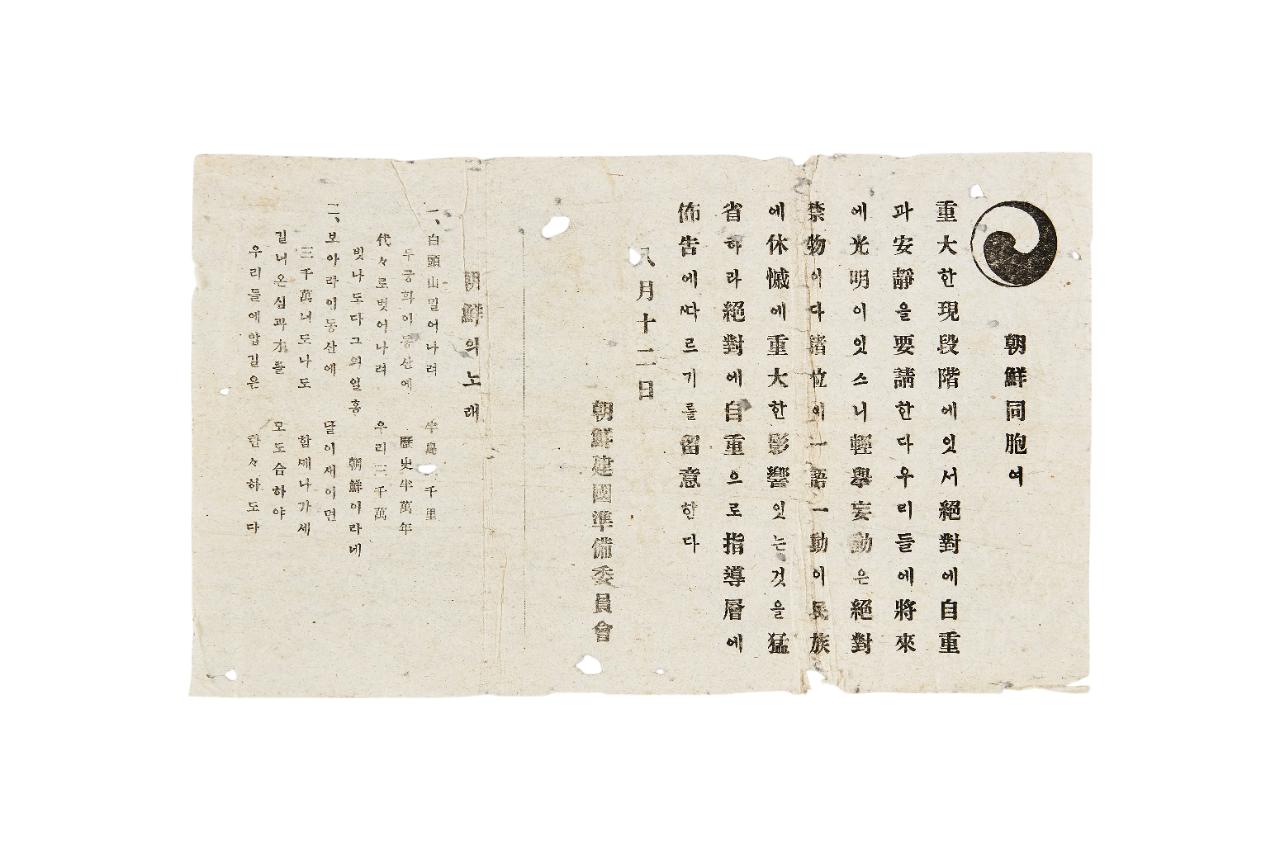 朝鮮同胞여
重大한現段階에잇서絕對에自重
과安靜을要請한다우리들에將來
에光明이잇스니輕擧妄動은絕對
禁物이다諸位이一語一動이民族
에休慽에重大한影響잇는것을猛
省하라絕對에自重으로指導層에
佈告에따르기를留意한다
八月十二日
朝鮮建國準備委員會
朝鮮의노래
一、白頭山밀어나려 半島 千里
무궁화이동산에 歷史半萬年
代々로벗어나려 우리三千萬
빗나도다그의일홈 朝鮮이라네
二、보아라이동산에 달이새이면
三千萬너도나도 함께나가세
길너온심과才틀 모도合하야
우리들에합길은 란々하도다